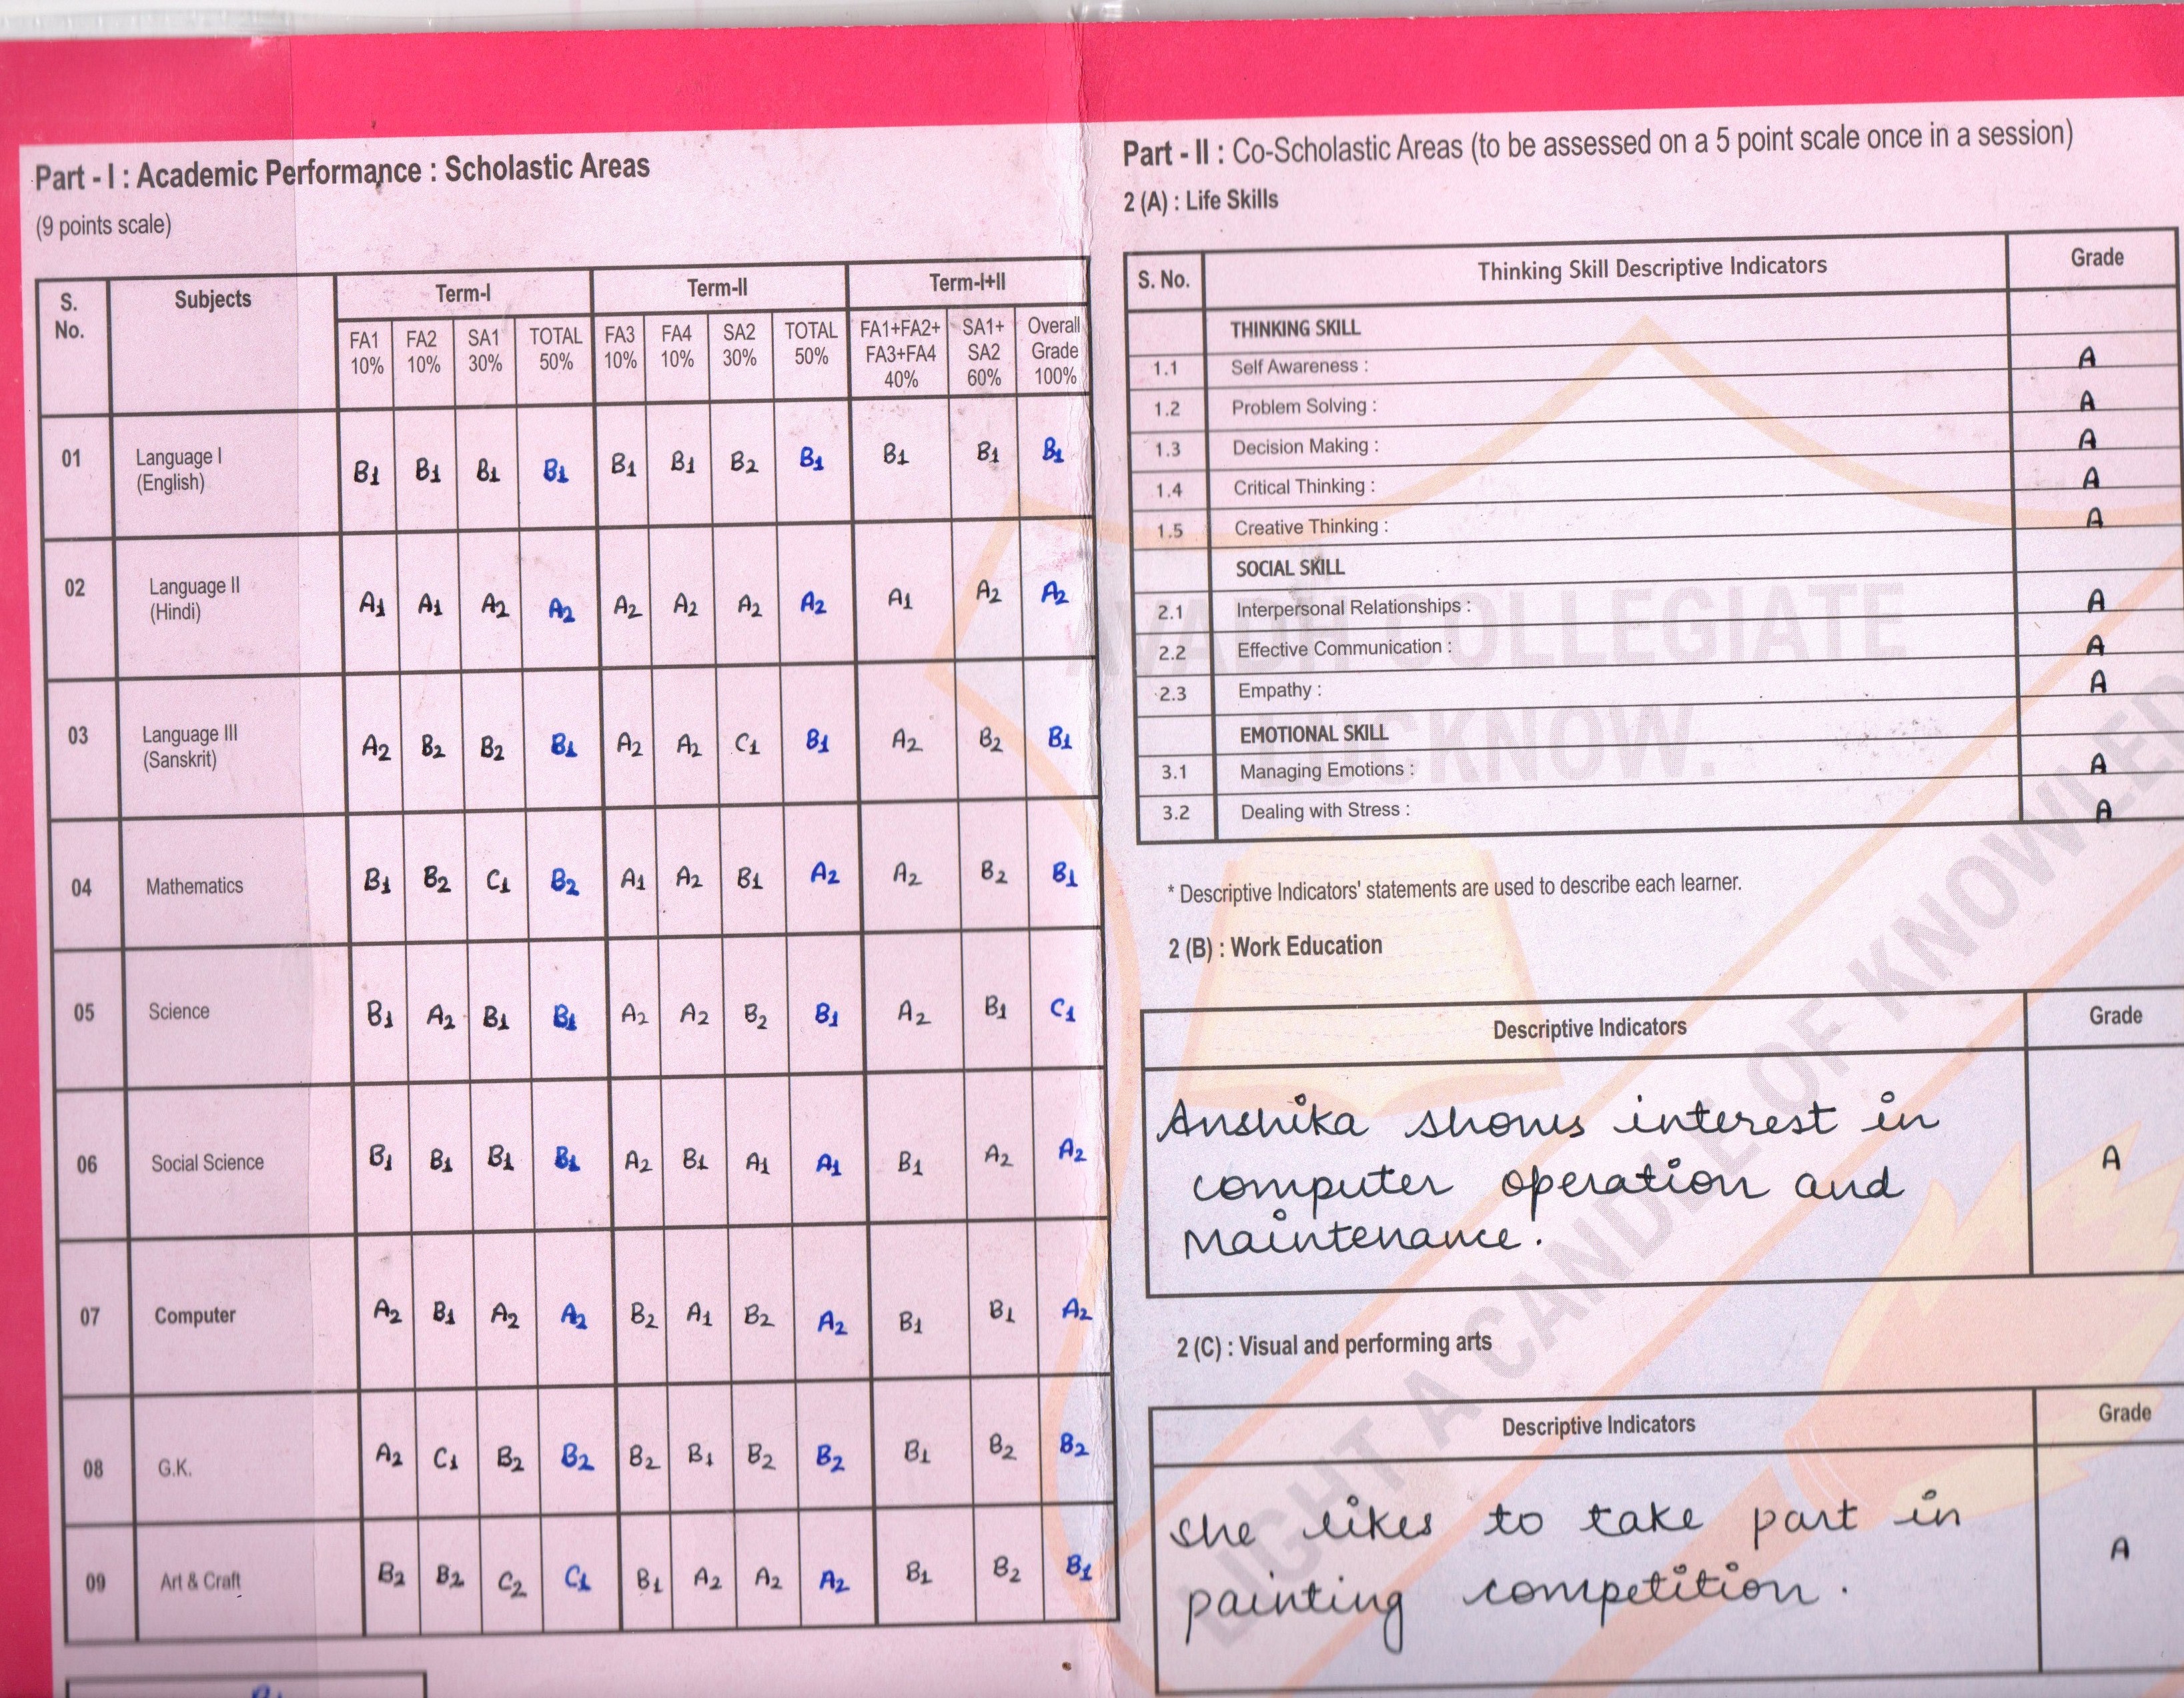 Part - I : Academic Performance : Scholastic Areas
(9 points scale)
S. No. Subjects Term-I Term-II Term-I+II
FA1 10% FA2 10% SA1 30% TOTAL 50% FA3 10% FA4 10% SA2 30% TOTAL 50% FA1+FA2+ FA3+FA4 40% SA1+ SA2 60% Overall Grade 100%
01 Language I (English) B1 B1 B1 B1 B1 B1 B2 B1 B1 B1 B1
02 Language II (Hindi) A1 A1 A2 A2 A2 A2 A2 A2 A1 A2 A2
03 Language III (Sanskrit) A2 B2 B2 B1 A2 A2 C1 B1 A2 B2 B1
04 Mathematics B1 B2 C1 B2 A1 A2 B1 A2 A2 B2 B1
05 Science B1 A2 B1 B1 A2 A2 B2 B1 A2 B1 C1
06 Social Science B1 B1 B1 B1 A2 B1 A1 A1 B1 A2 A2
07 Computer A2 B1 A2 A2 B2 A1 B2 A2 B1 B1 A2
08 G.K. A2 C1 B2 B2 B2 B1 B2 B2 B1 B2 B2
09 Art & Craft B2 B2 C2 C1 B1 A2 A2 A2 B1 B2 B1
Part - II : Co-Scholastic Areas (to be assessed on a 5 point scale once in a session)
2 (A) : Life Skills
S. No. Thinking Skill Descriptive Indicators Grade
THINKING SKILL
1.1 Self Awareness : A
1.2 Problem Solving : A
1.3 Decision Making : A
1.4 Critical Thinking : A
1.5 Creative Thinking : A
SOCIAL SKILL
2.1 Interpersonal Relationships : A
2.2 Effective Communication : A
2.3 Empathy : A
EMOTIONAL SKILL
3.1 Managing Emotions : A
3.2 Dealing with Stress : A
* Descriptive Indicators' statements are used to describe each learner.
2 (B) : Work Education
Descriptive Indicators Grade
Anshika shows interest in
computer operation and A
Maintenance.
2 (C) : Visual and performing arts
Descriptive Indicators Grade
she likes to take part in
painting competition. A
AVADH COLLEGIATE
LUCKNOW.
LIGHT A CANDLE OF KNOWLED